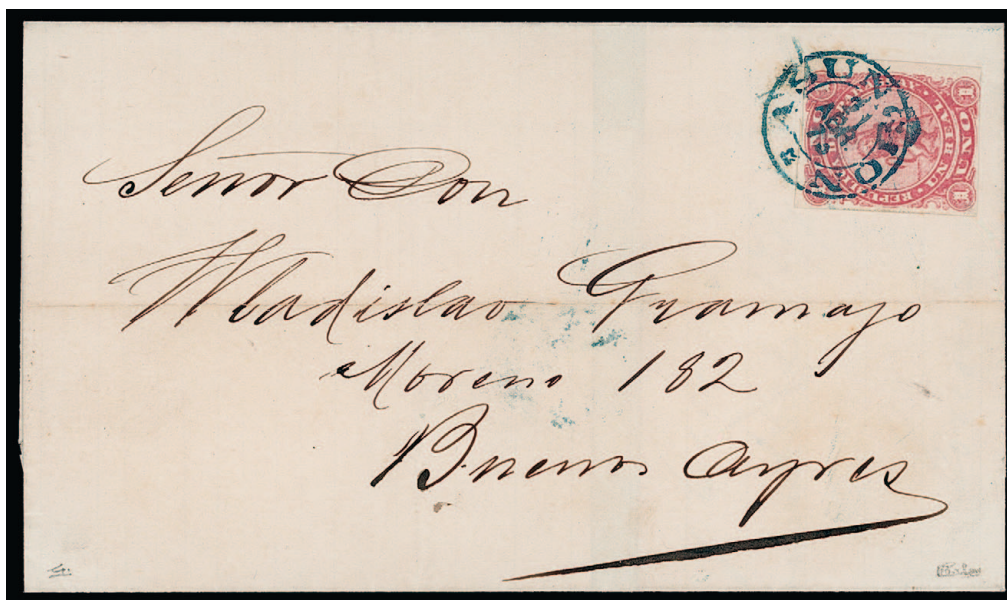 ASUNCION
UN REAL
Señor Don
Wladislao Gramajo
Moreno 182
Buenos Ayres